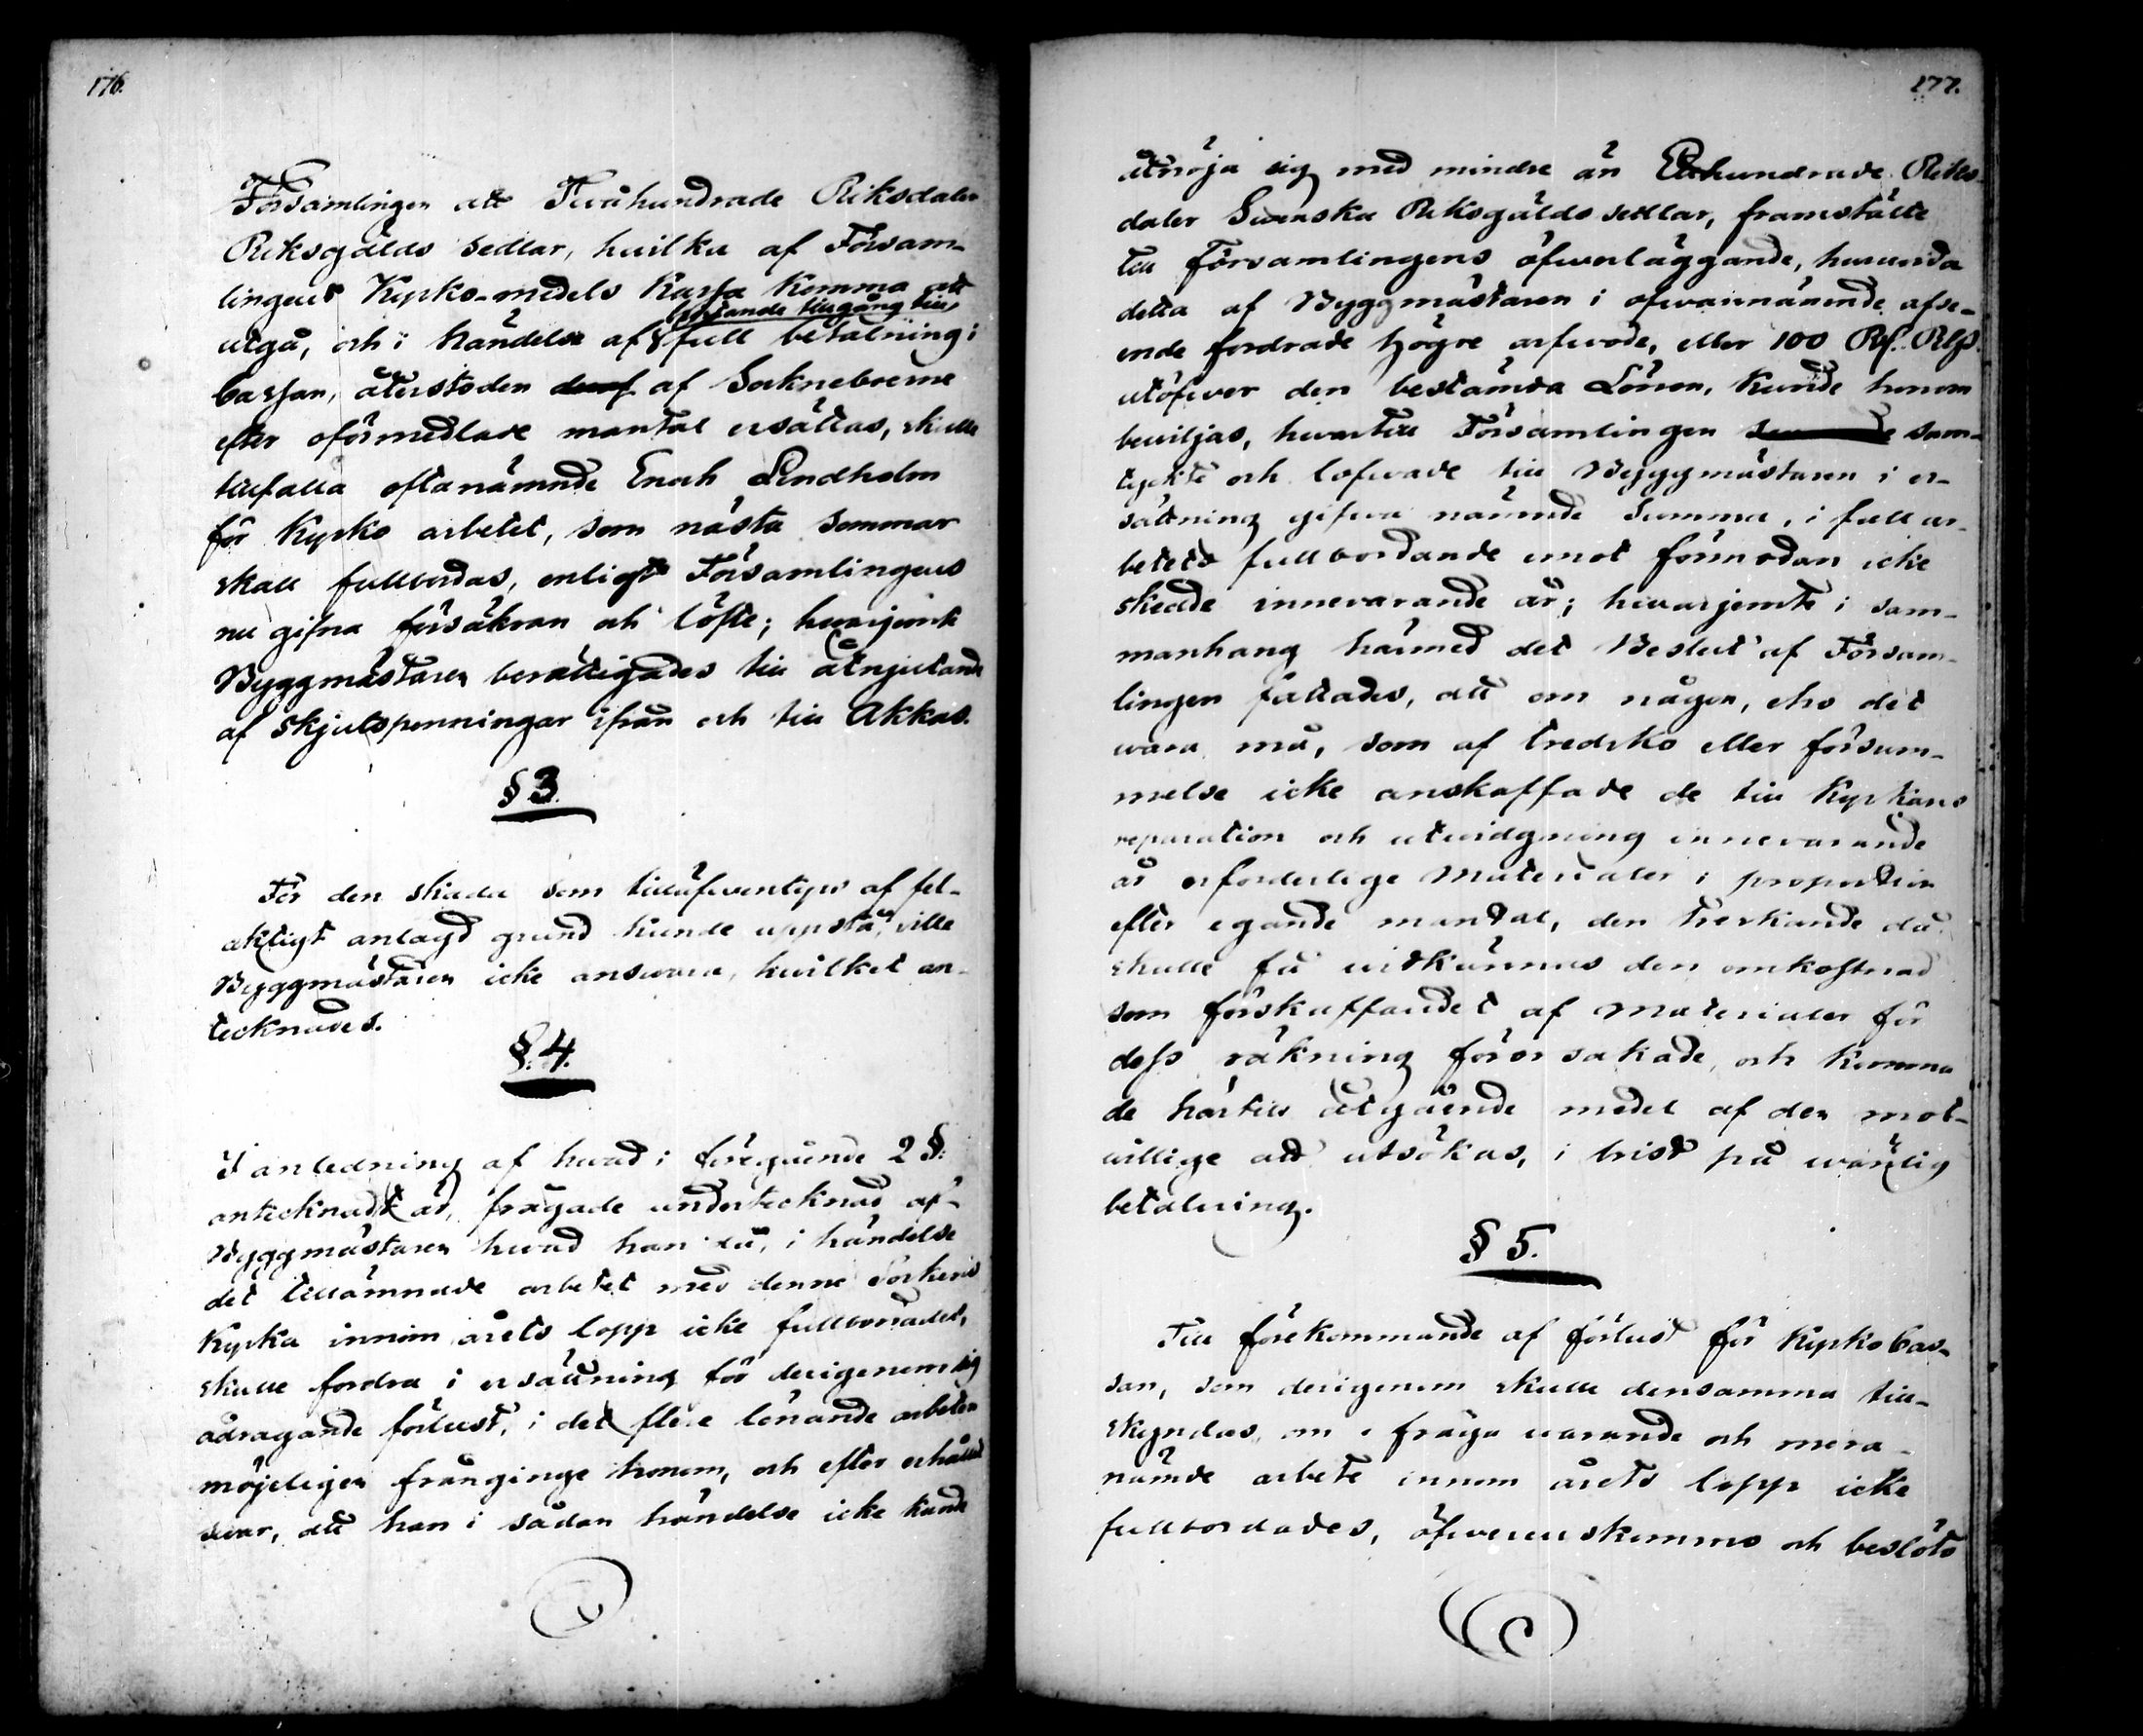 176.
Församlingen att Tvåhundrade Riksdaler
Riksgälds sedlar, hvilka af Försam-
lingens Kyrko-medels Kassa komma att
utgå, och i händelse af felande tillgång till full betalning i
Cassan, återstoden af Sockneboerne
efter oförmedlade mantal ersättas, skulle
tillfalla oftanämnde Enoch Lindholm
för Kyrko arbetet, som nästa sommar
skall fullbordas, enligt Församlingens
nu gifna försäkran och löfte; hvarjemte
Byggmästaren berättigades till åtnjutande
af skjutspenningar ifrån och till Akkas.
§ 3.
För den skada som tilläfventyrs af fel-
aktigt anlagd grund kunde uppstå, ville
Byggmästaren icke answara, hvilket an-
tecknades.
§. 4.
I anledning af hvad i föregående 2 §.
antecknadt är, frågade undertecknad af
Byggmästaren hvad han då, i händelse
det tillämnade arbetet med denne Sockens
Kyrka innom årets lopp icke fullbordades,
skulle fordra i ersättning för derigenom sig
ådragande förlust, i det flere lönande arbeten
möjeligen frånginge honom, och efter erhållet
svar, att han i sådan händelse icke kunde
177.
åtnöja sig med mindre än Etthundrade Riks-
daler Svenska Riksgälds sedlar, framstälte
till Församlingens öfwerläggande, huruvida
detta af Byggmästaren i ofwannämnde afse-
ende fordrade högre arfwode, eller 100 Rd. Rgs.
utöfwer den bestämda Lönen, kunde honom
beviljas, hvartill Församlingen sam-
tyckte och lofwade till Byggmästaren i er-
sättning gifwa nämnde Summa, i fall ar-
betets fullbordande emot förmodan icke
skedde innevarande år; hvarjemte i sam-
manhang härmed det Beslut af Försam-
lingen fattades, att om någon, eho det
wara må, som af tredsko eller försum-
melse icke anskaffade de till Kyrkans
reparation och utvidgning innevarande
år erforderlige Materialer i proportion
efter egande mantal, den treskande då
skulle få widkännas den omkostnad
som förskaffandet af Materialer för
dess räkning förorsakade, och komma
de härtill åtgående medel af den mot-
willige att utsökas, i brist på wänlig
betalning.
§ 5.
Till förekommande af förlust för Kyrko Cas-
san, som derigenom skulle densamma till-
skyndas, om i fråga warande och mera-
nämde arbete innom årets lopp icke
fullbordades, öfwerenskomms och beslöts